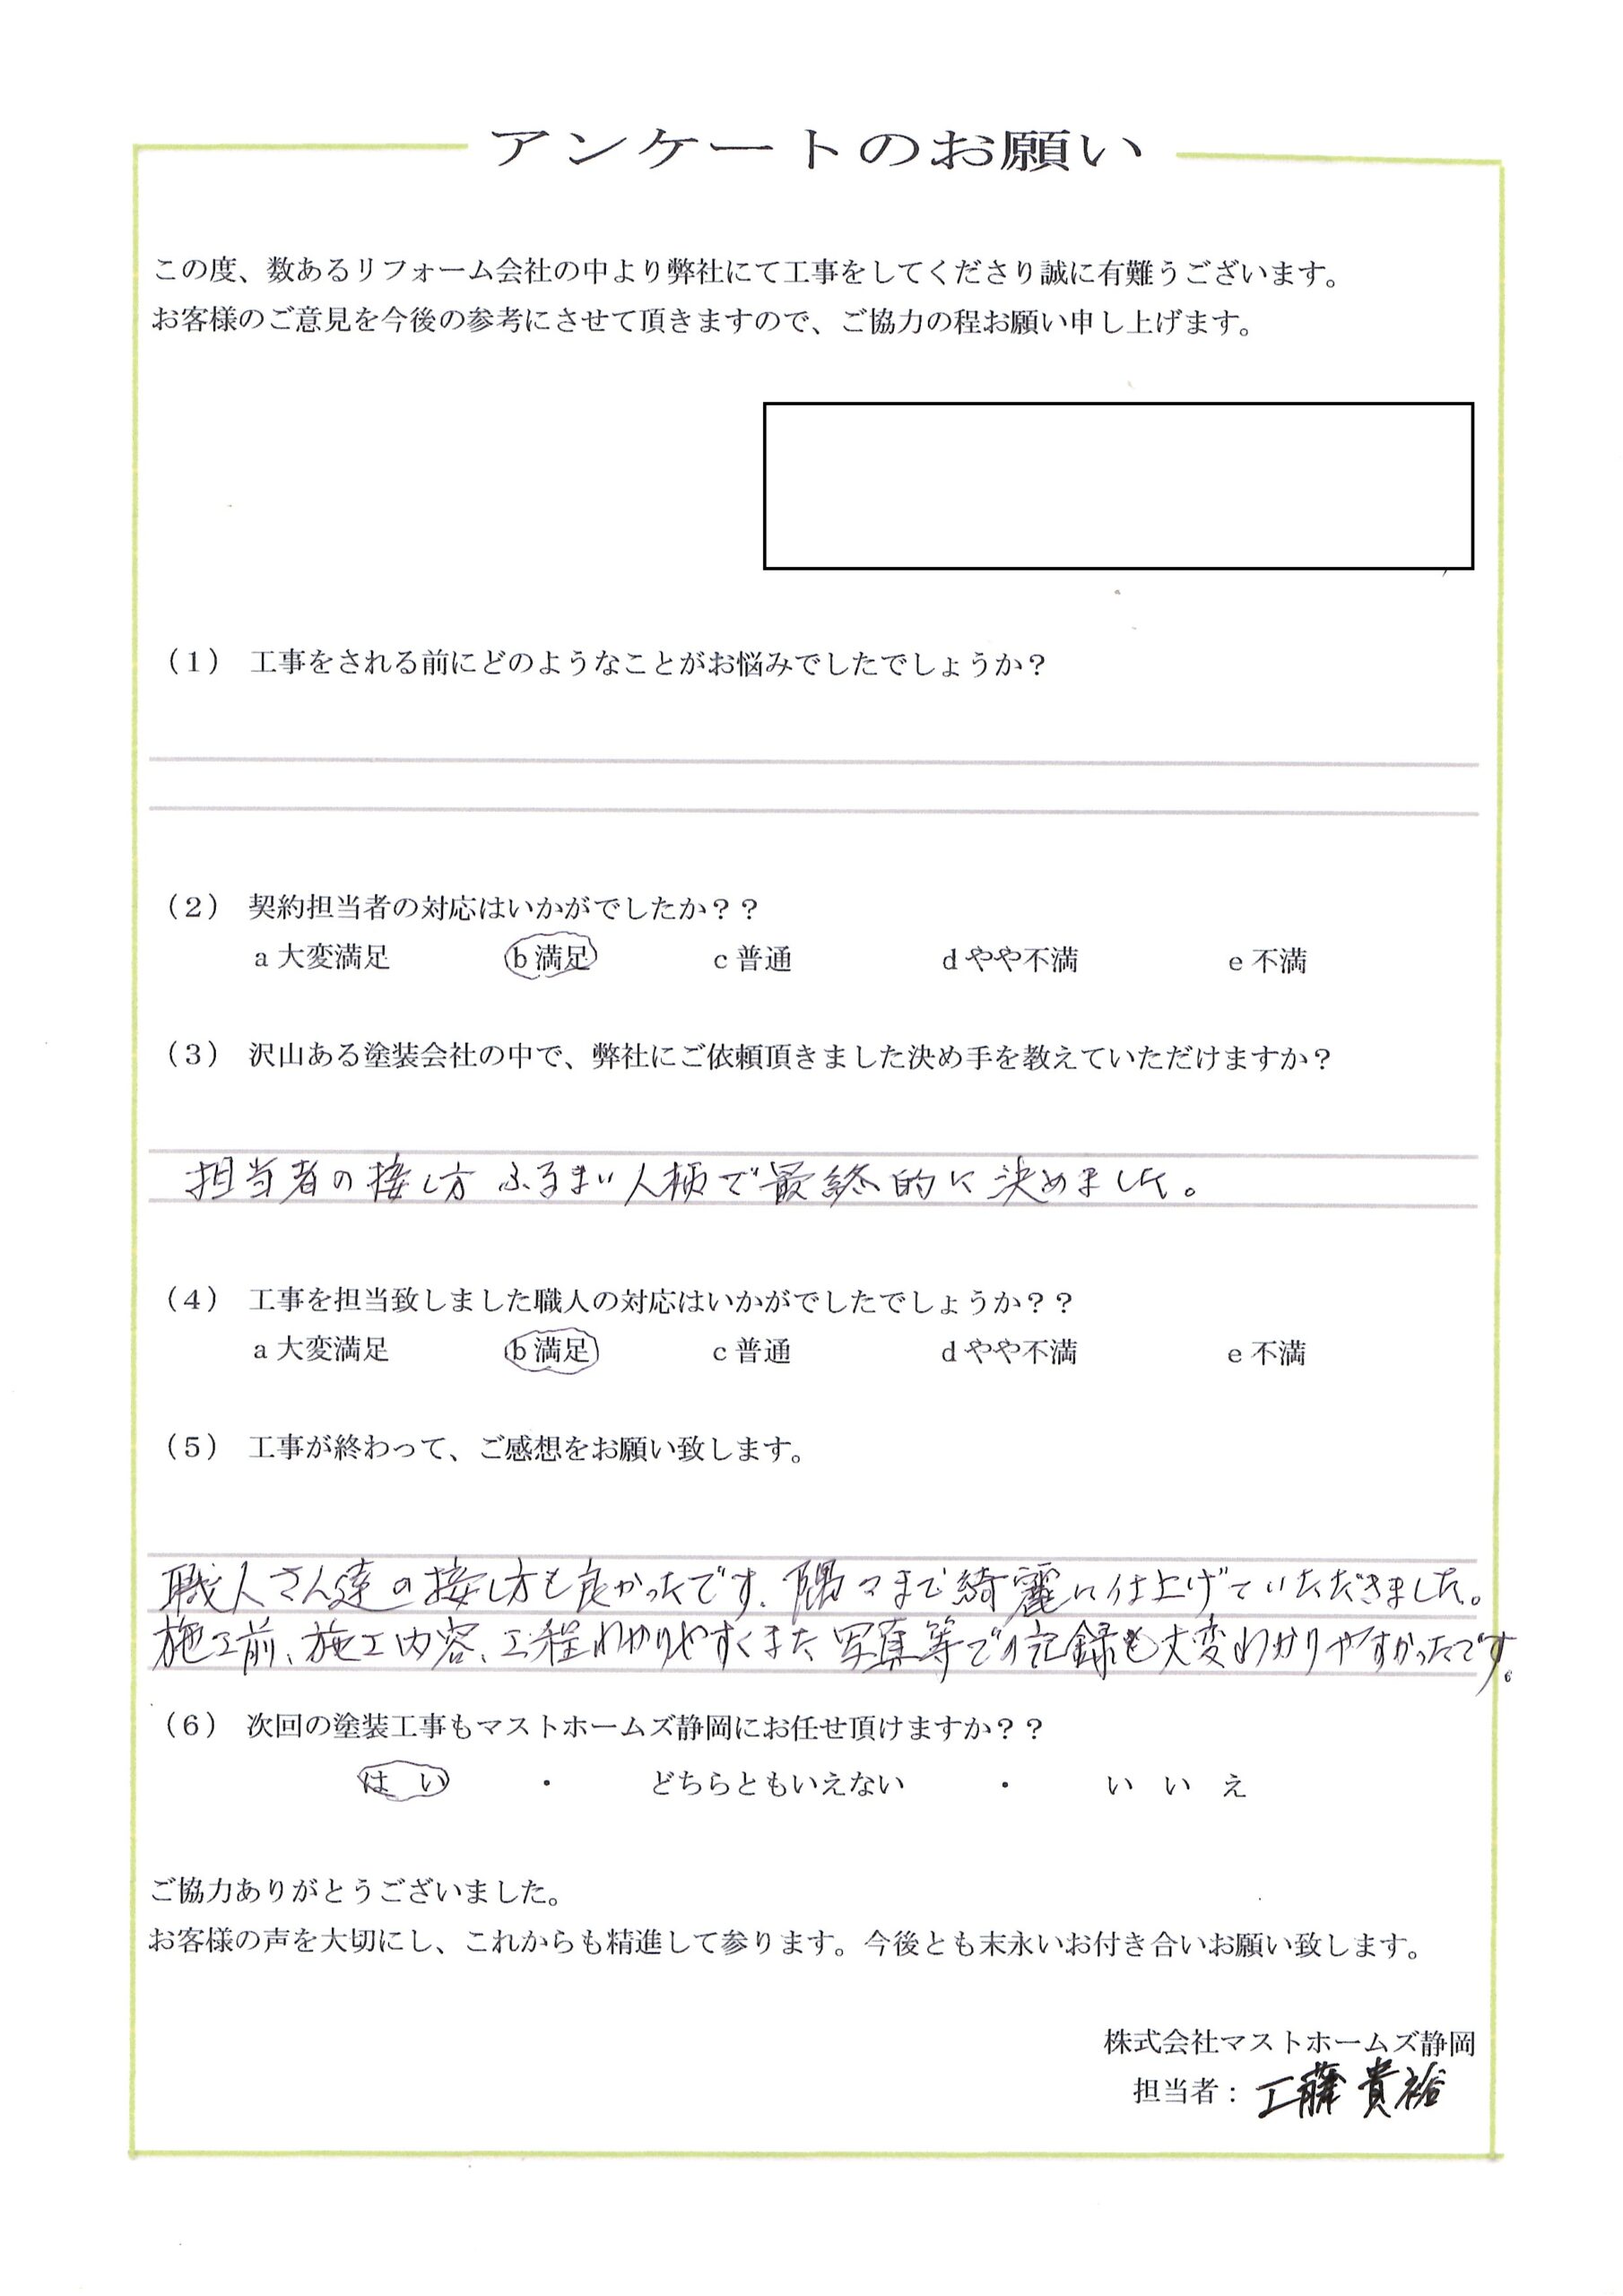 アンケートのお願い
この度、数あるリフォーム会社の中より弊社にて工事をしてくださり誠に有難うございます。
お客様のご意見を今後の参考にさせて頂きますので、ご協力の程お願い申し上げます。
（1） 工事をされる前にどのようなことがお悩みでしたでしょうか？
（2） 契約担当者の対応はいかがでしたか？？
a 大変満足 b 満足 c 普通 d やや不満 e 不満
（3） 沢山ある塗装会社の中で、弊社にご依頼頂きました決め手を教えていただけますか？
担当者の接し方 ふるまい人柄で最終的に決めました。
（4） 工事を担当致しました職人の対応はいかがでしたでしょうか？？
a 大変満足 b 満足 c 普通 d やや不満 e 不満
（5） 工事が終わって、ご感想をお願い致します。
職人さん達の接し方も良かったです、隅々まで綺麗に仕上げていただきました。
施工前、施工内容、工程わかりやすくまた写真等での記録も大変わかりやすかったです。
（6） 次回の塗装工事もマストホームズ静岡にお任せ頂けますか？？
は い ・ どちらともいえない ・ い い え
ご協力ありがとうございました。
お客様の声を大切にし、これからも精進して参ります。今後とも末永いお付き合いお願い致します。
株式会社マストホームズ静岡
担当者：工藤 貴裕